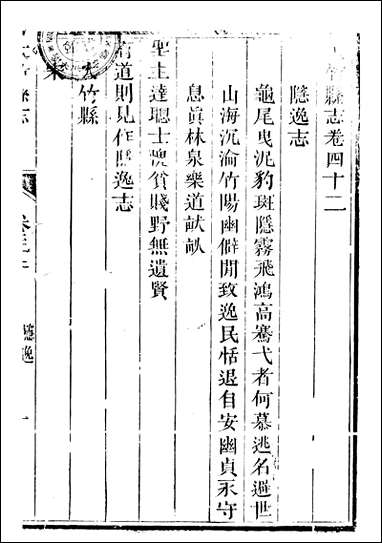 竹縣志卷四十二
隱逸志
龜尾曳泥豹斑隱霧飛鴻高騫弋者何慕逃名避世
山海沉淪竹陽幽僻間致逸民恬退自安幽貞永守
息眞林泉樂道畎畝
聖主達聰士
貧賤野無遺賢
有道則見作隱逸志
竹縣
縣志
隱逸
一